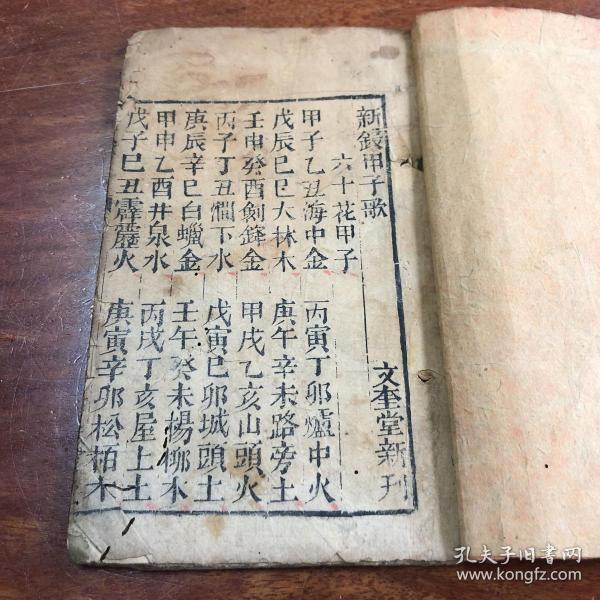 新鋟甲子歌 文奎堂新刊
六十花甲子
甲子乙丑海中金 丙寅丁卯爐中火
戊辰巳巳大林木 庚午辛未路旁土
壬申癸酉劍鋒金 甲戌乙亥山頭火
丙子丁丑澗下水 戊寅巳卯城頭土
庚辰辛巳白蠟金 壬午癸未楊柳木
甲申乙酉井泉水 丙戌丁亥屋上土
戊子巳丑霹靂火 庚寅辛卯松柏木
孔夫子旧书网
www.kongfz.com